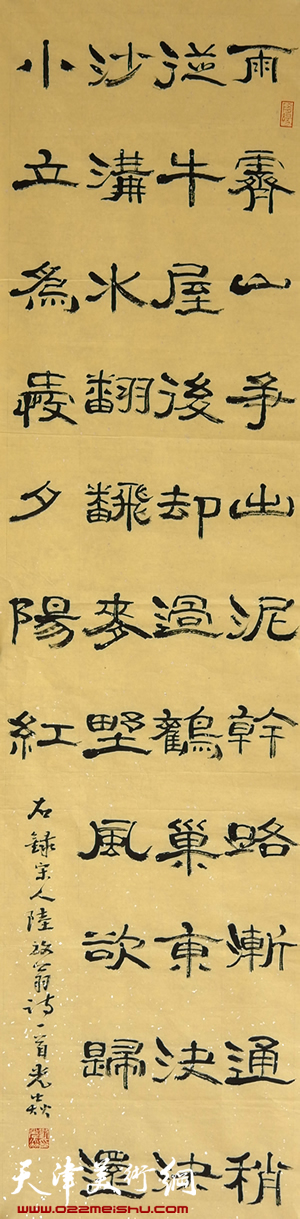 雨霽山爭出泥幹路漸通稍
從牛屋後却過鸛巢東決決
沙溝水翻飜麥野風欲歸還
小立爲愛夕陽紅
右録宋人陸放翁詩一首光焱
天津美術網
www.022meishu.com